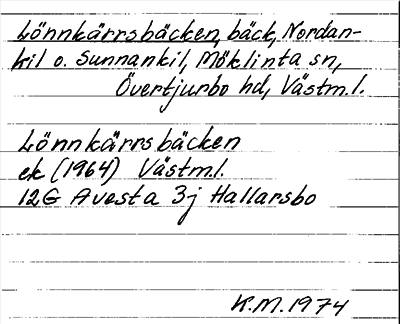 Lönnkärrsbäcken, bäck, Nordan-
kil o. Sunnankil, Möklinta sn,
Övertjurbo hd, Västm.l.
Lönnkärrsbäcken
ek (1964) Västm.l.
12G Avesta 3j Hallarsbo
K.M. 1974